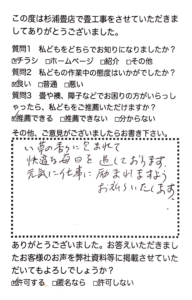 この度は杉浦畳店で畳工事をさせていただきま
してありがとうございました。
質問1 私どもをどちらでお知りになりましたか?
☑チラシ □ホームページ □紹介 □その他
質問2 私どもの作業中の態度はいかがでしたか?
☑良い □普通 □悪い
質問3 畳や襖、障子などでお困りの方がいらっし
ゃったら、私どもをご推薦いただけますか?
☑推薦できる □推薦できない □分からない
その他、ご意見がございましたらお書き下さい。
い草の香りに包まれて
快適な毎日を過しております。
元気に仕事に励まれますよう
お祈りいたします。
ありがとうございました。お答えいただきまし
たお客様のお声を弊社資料等に掲載させていた
だいてもよろしでしょうか?
☑許可する □匿名なら □許可しない